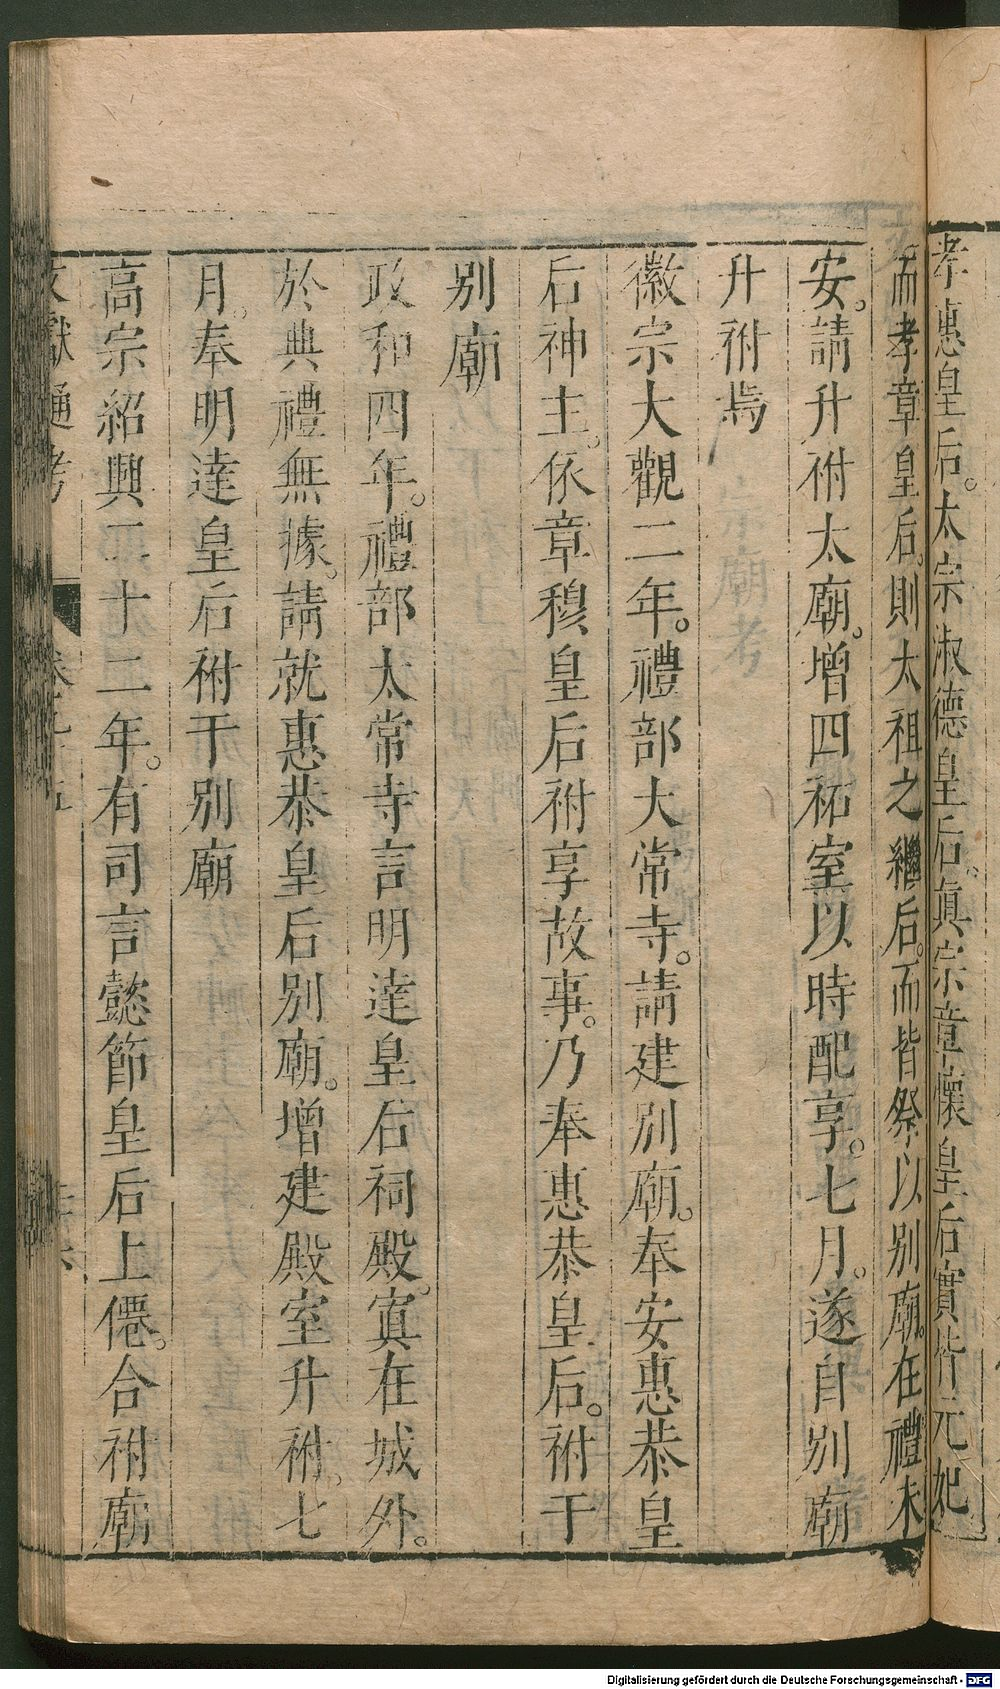 孝惠皇后。太宗淑德皇后。真宗章懷皇后實皆元妃
而孝章皇后。則太祖之繼后。而皆祭以別廟。在禮未
安。請升祔太廟。增四祏室以時配享。七月。遂自別廟
升祔焉
徽宗大觀二年。禮部大常寺。請建別廟。奉安惠恭皇
后神主。依章穆皇后祔享故事。乃奉惠恭皇后。祔于
別廟
政和四年。禮部太常寺言明達皇后祠殿。寘在城外。
於典禮無據。請就惠恭皇后別廟。增建殿室升祔。七
月。奉明達皇后祔于別廟
高宗紹興三十二年。有司言懿節皇后上僊。合祔廟
文獻通考
Digitalisierung gefördert durch die Deutsche Forschungsgemeinschaft - DFG